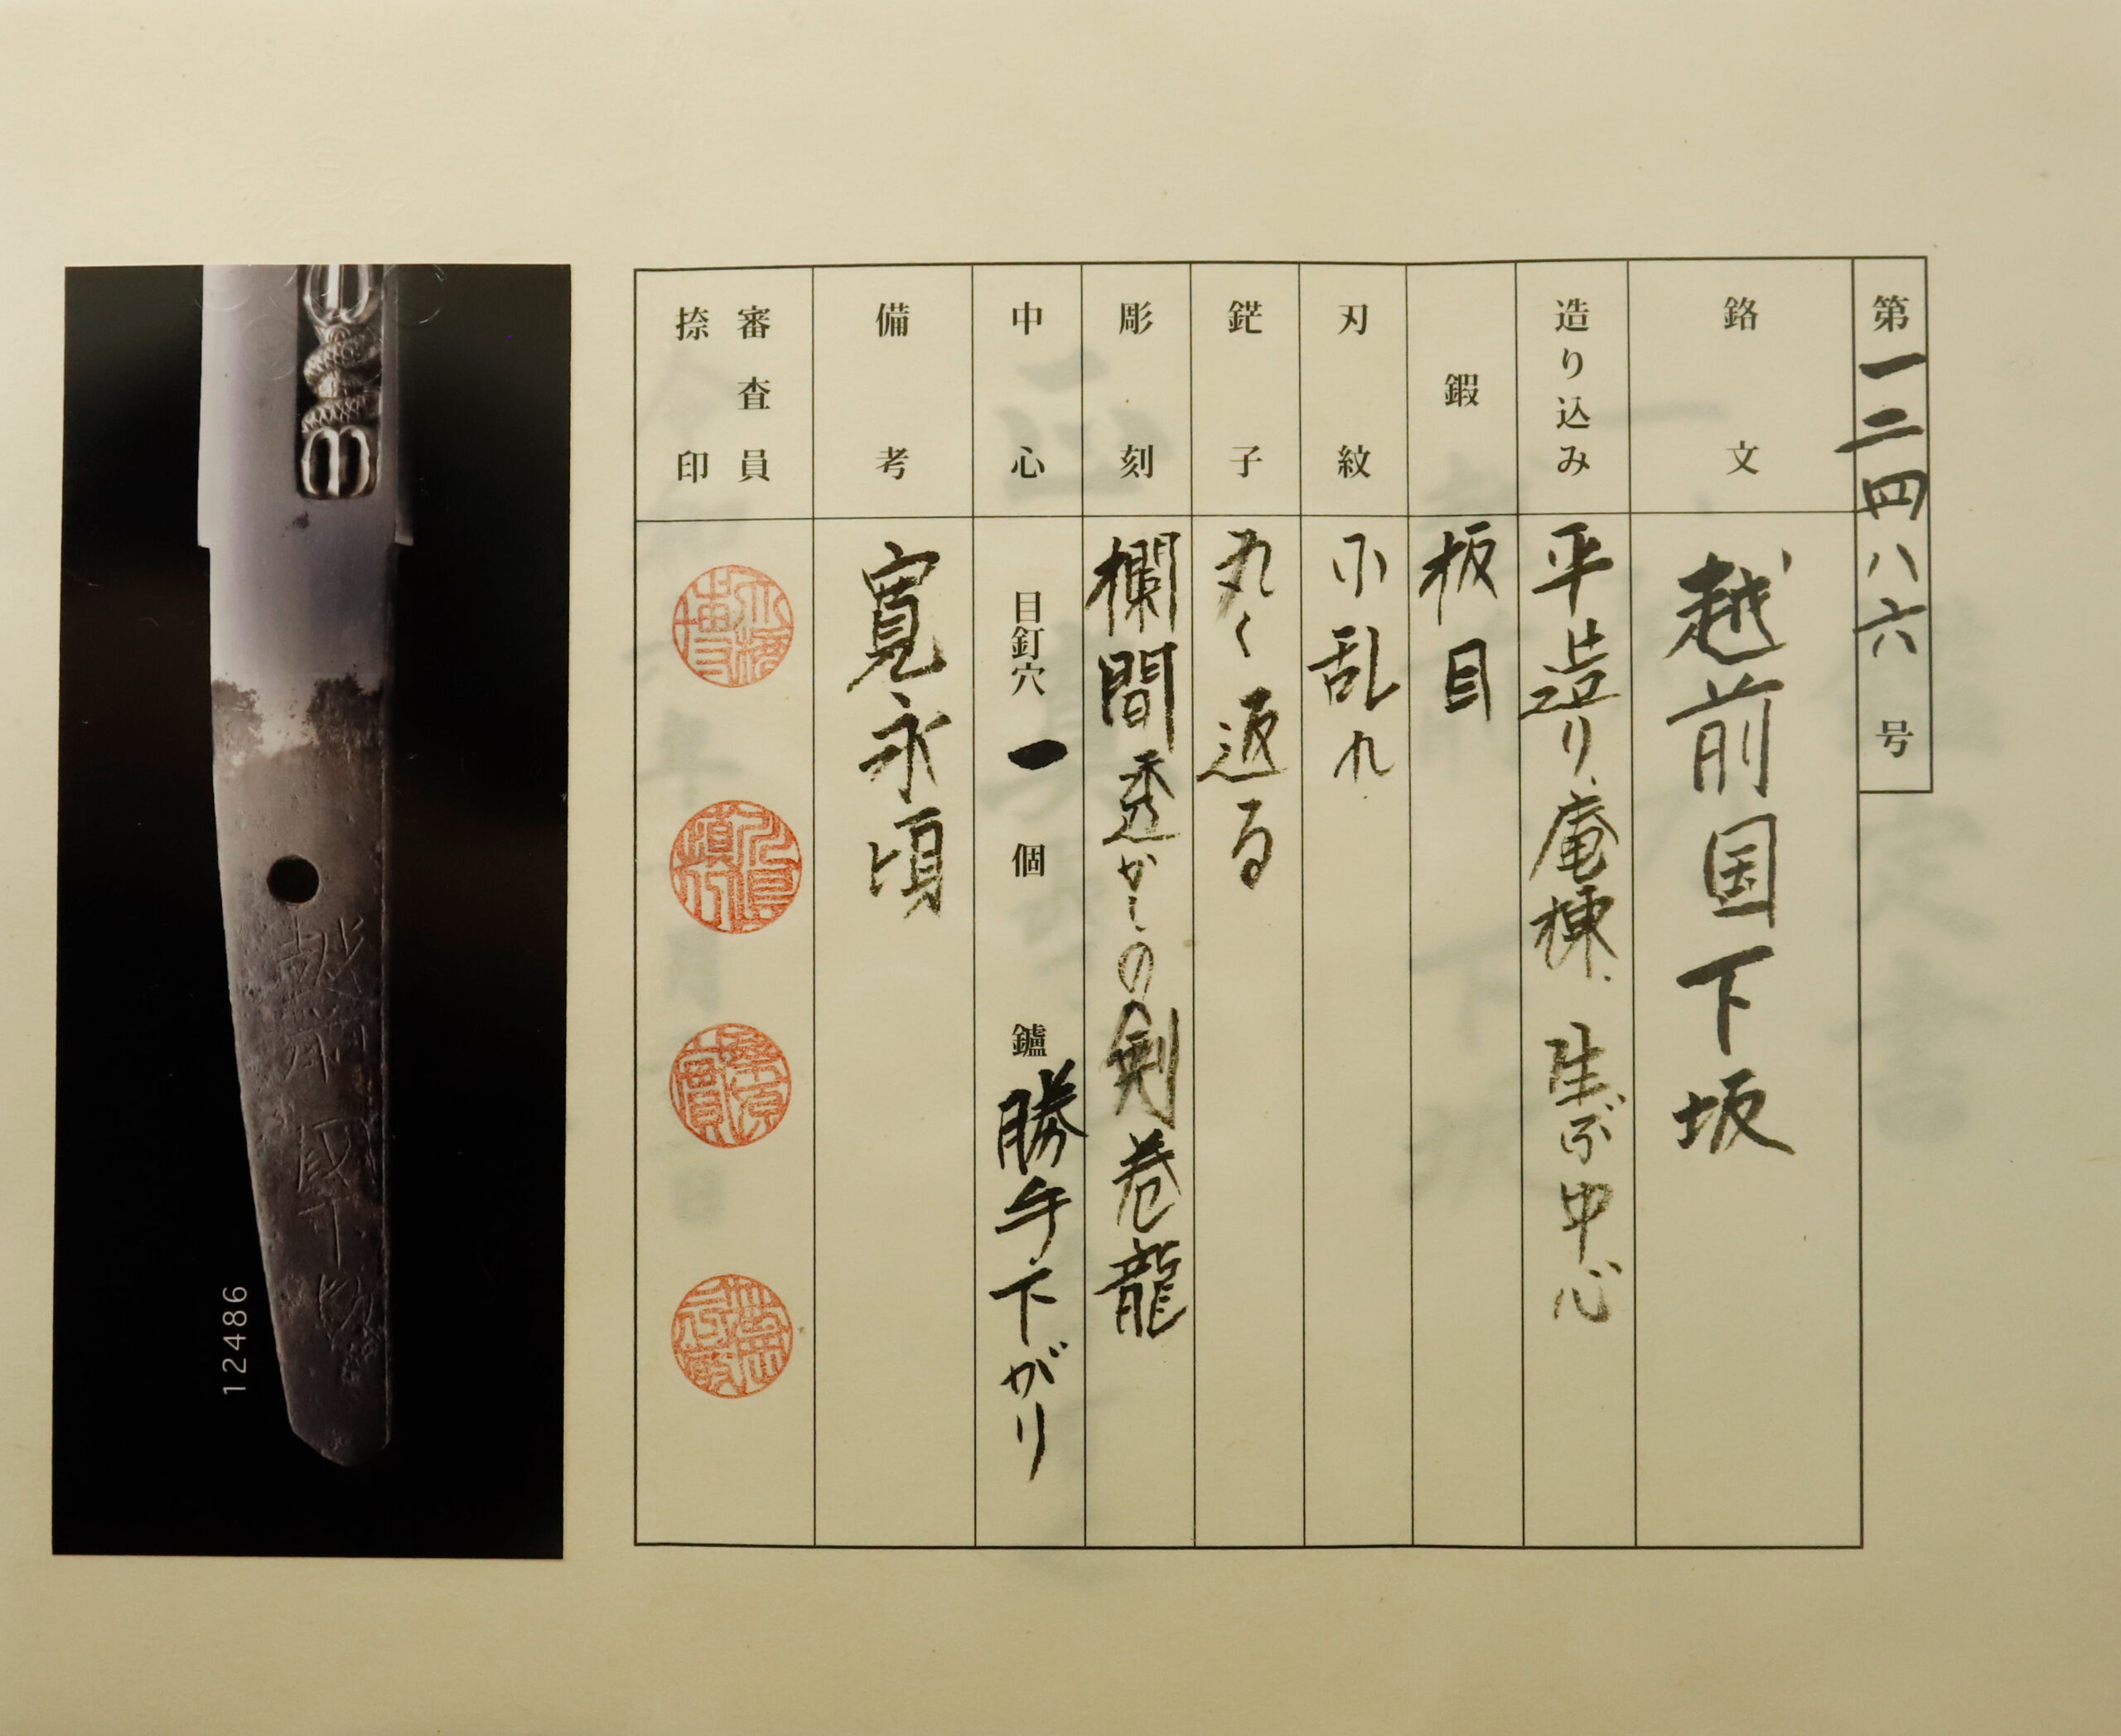 第一二四八六号
銘文 越前国下坂
造り込み 平造り、庵棟、生ぶ中心
鍜 板目
刃紋 小乱れ
鋩子 丸く返る
彫刻 欄間透かしの剣巻龍
中心 目釘穴 一 個 鑢 勝手下がり
備考 寛永頃
審査員
捺印
越前國下坂
12486